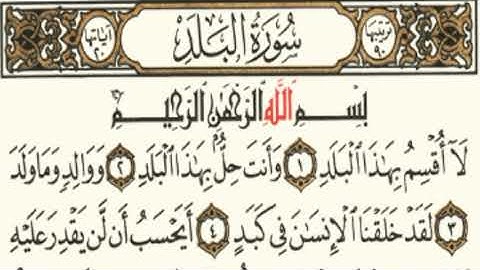 ترتيبها ٩٠ سُورَةُ الْبَلَدِ آياتها ٢٠
بِسْمِ اللَّهِ الرَّحْمَٰنِ الرَّحِيمِ
لَآ أُقْسِمُ بِهَٰذَا الْبَلَدِ ١ وَأَنتَ حِلٌّ بِهَٰذَا الْبَلَدِ ٢ وَوَالِدٍ وَمَا وَلَدَ
٣ لَقَدْ خَلَقْنَا الْإِنسَٰنَ فِي كَبَدٍ ٤ أَيَحْسَبُ أَن لَّن يَقْدِرَ عَلَيْهِ